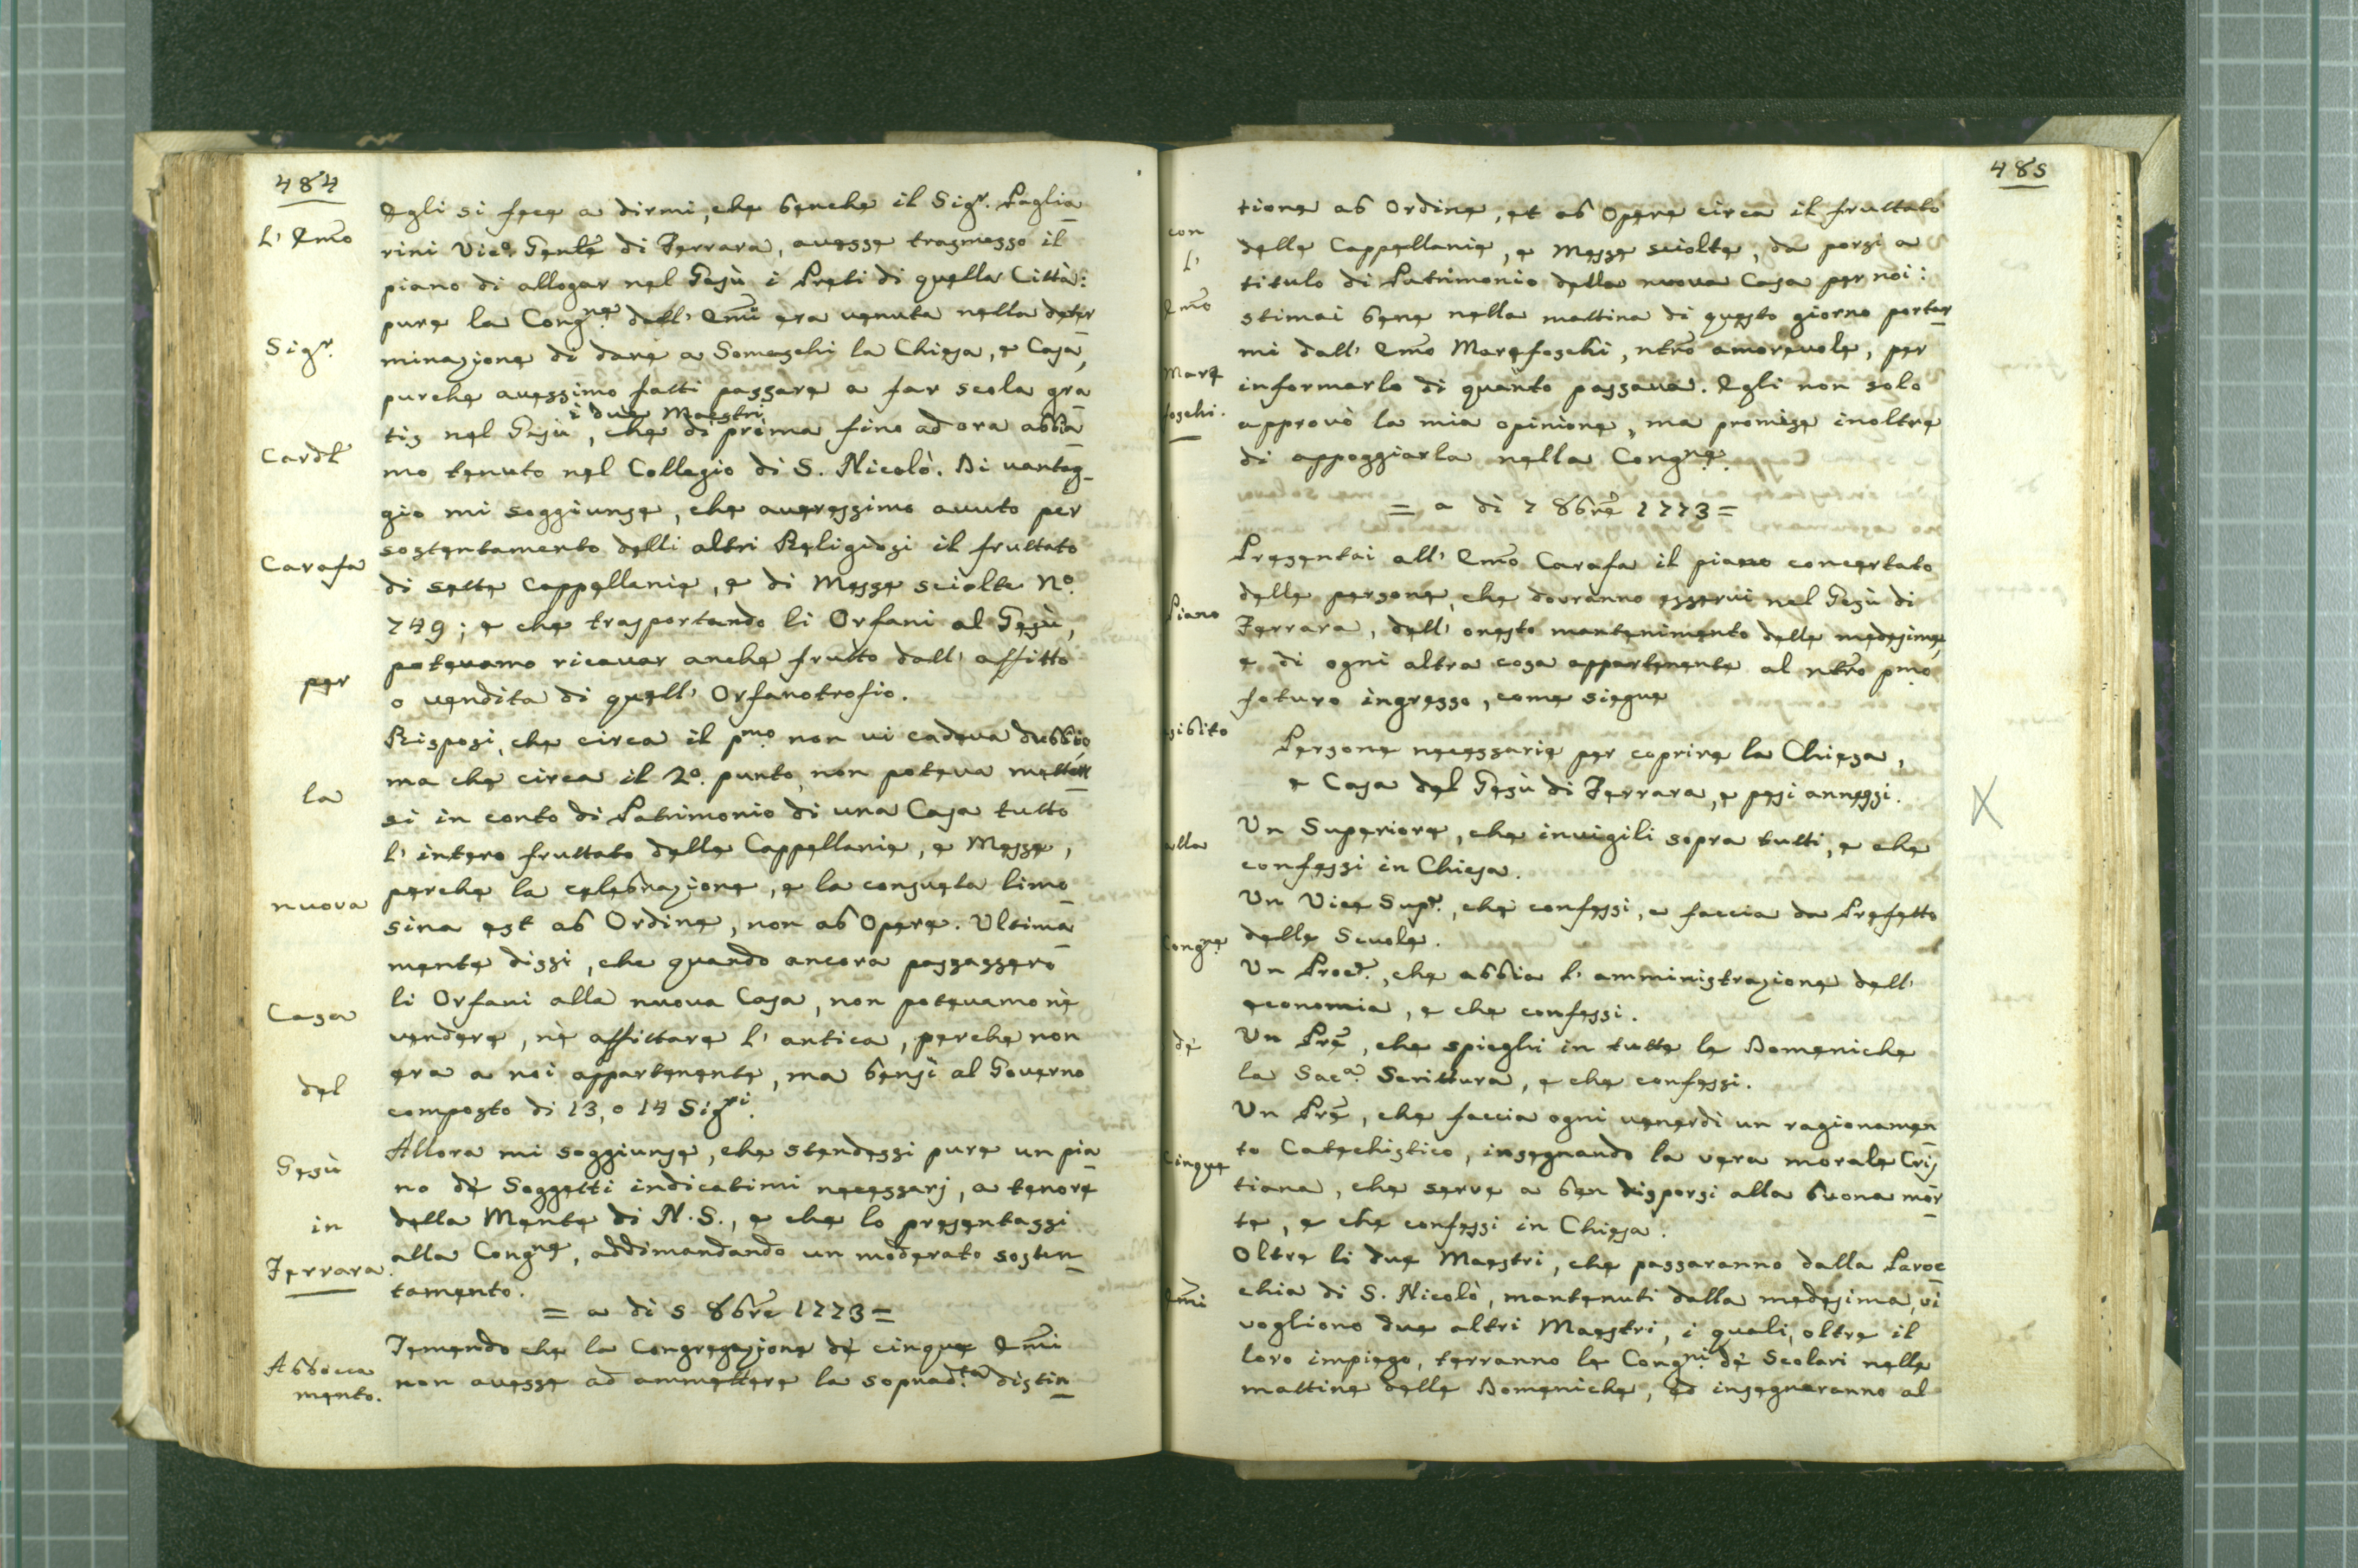 484
L' Em̃o
Sigr.
Cardl̃
Carafa
per
la
nuova
Casa
del
Gesù
in
Ferrara.
Abbocca
mento.
Egli si fece a dirmi, che benche il Sigr. Paglia
rini Vice Gentẽ di Ferrara, avesse trasmesso il
piano di allogar nel Gesù i Preti di quella Città:
pure la Congne. dell' Em̃i era venuta nella deter
minazione di dare a Somaschi la Chiesa, e Casa,
purche avessimo fatti passare a far scola gra
i due Maestri
tis nel Gesù, che di prima fino ad ora abbia
mo tenuto nel Collegio di S. Nicolò. Di vantag-
gio mi soggiunse, che averessimo avuto per
sostentamento delli altri Religiosi il fruttato
di sette Cappellanie, e di Messe sciolte No.
749; e che trasportando li Orfani al Gesù,
potevamo ricavar anche frutto dall' affitto
o vendita di quell' Orfanotrofio.
Risposi, che circa il pmo. non vi cadeva dubbio
ma che circa il 2o. punto, non poteva metter
si in conto di Patrimonio di una Casa tutto
l' intero fruttato delle Cappellanie, e Messe,
perche la celebrazione, e la consueta limo
sina est ab Ordine, non ab Opere. Ultima
mente dissi, che quando ancora passassero
li Orfani alla nuova Casa, non potevamo nè
vendere, nè affittare l' antica, perche non
era a noi appartenente, ma bensì al Governo
composto di 13, o 14 Sigri.
Allora mi soggiunse, che stendessi pure un pia
no dè Soggetti indicatimi necessarj, a tenore
della Mente di N. S., e che lo presentassi
alla Congne, addimandando un moderato sosten
tamento.
= a dì 5 8bre 1773 =
Temendo che la Congregazione dè cinque Em̃i
non avesse ad ammettere la sopradta. distin
485
con
l'
Em̃o
Mare
foschi.
Piano
esibito
alla
Congne.
dè
Cinque
Em̃i
tione ab Ordine, et ab Opere circa il fruttato
delle Cappellanie, e Messe sciolte, da porsi a
titulo di Patrimonio della nuova Casa per noi:
stimai bene nella mattina di questo giorno portar
mi dall' Em̃o Marefoschi, ntrõ amorevole, per
informarlo di quanto passava. Egli non solo
approvò la mia opinione, ma promise inoltre
di appoggiarla nella Congne.
= a dì 7 8brẽ 1773 =
Presentai all' Em̃o Carafa il piano concertato
delle persone, che dovranno esservi nel Gesù di
Ferrara, dell' onesto mantenimento delle medesime,
e di ogni altra cosa appartenente al ntrõ pmo.
foturo ingresso, come siegue
Persone necessarie per coprire la Chiesa,
e Casa del Gesù di Ferrara, e pesi annessi.
X
Un Superiore, che invigili sopra tutti, e che
confessi in Chiesa.
Un Vice Supr., che confessi, e faccia da Prefetto
delle Scuole.
Un Procr., che abbia l' amministrazione dell'
economia, e che confessi.
Un Prẽ, che spieghi in tutte le Domeniche
la Saca. Scrittura, e che confessi.
Un Prẽ, che faccia ogni venerdì un ragionamen
to Catechistico, insegnando la vera morale Cris
tiana, che serve a ben disporsi alla buona mor
te, e che confessi in Chiesa.
Oltre li due Maestri, che passaranno dalla Paroc
chia di S. Nicolò, mantenuti dalla medesima, vi
vogliono due altri Maestri, i quali, oltre il
loro impiego, terranno le Congni. dè Scolari nelle
mattine delle Domeniche, ed insegnaranno al